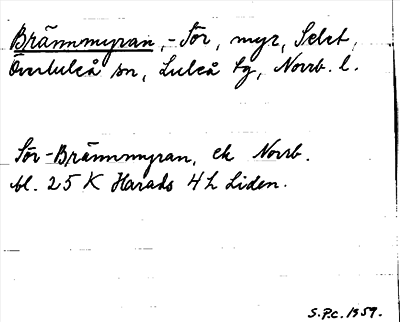 Brännmyran, - Sör, myr, Selet,
Överluleå sn, Luleå tg, Norrb. l.
Sör-Brännmyran, ek Norrb.
bl. 25 K Harads 4 h Liden.
S.P.c. 1959.